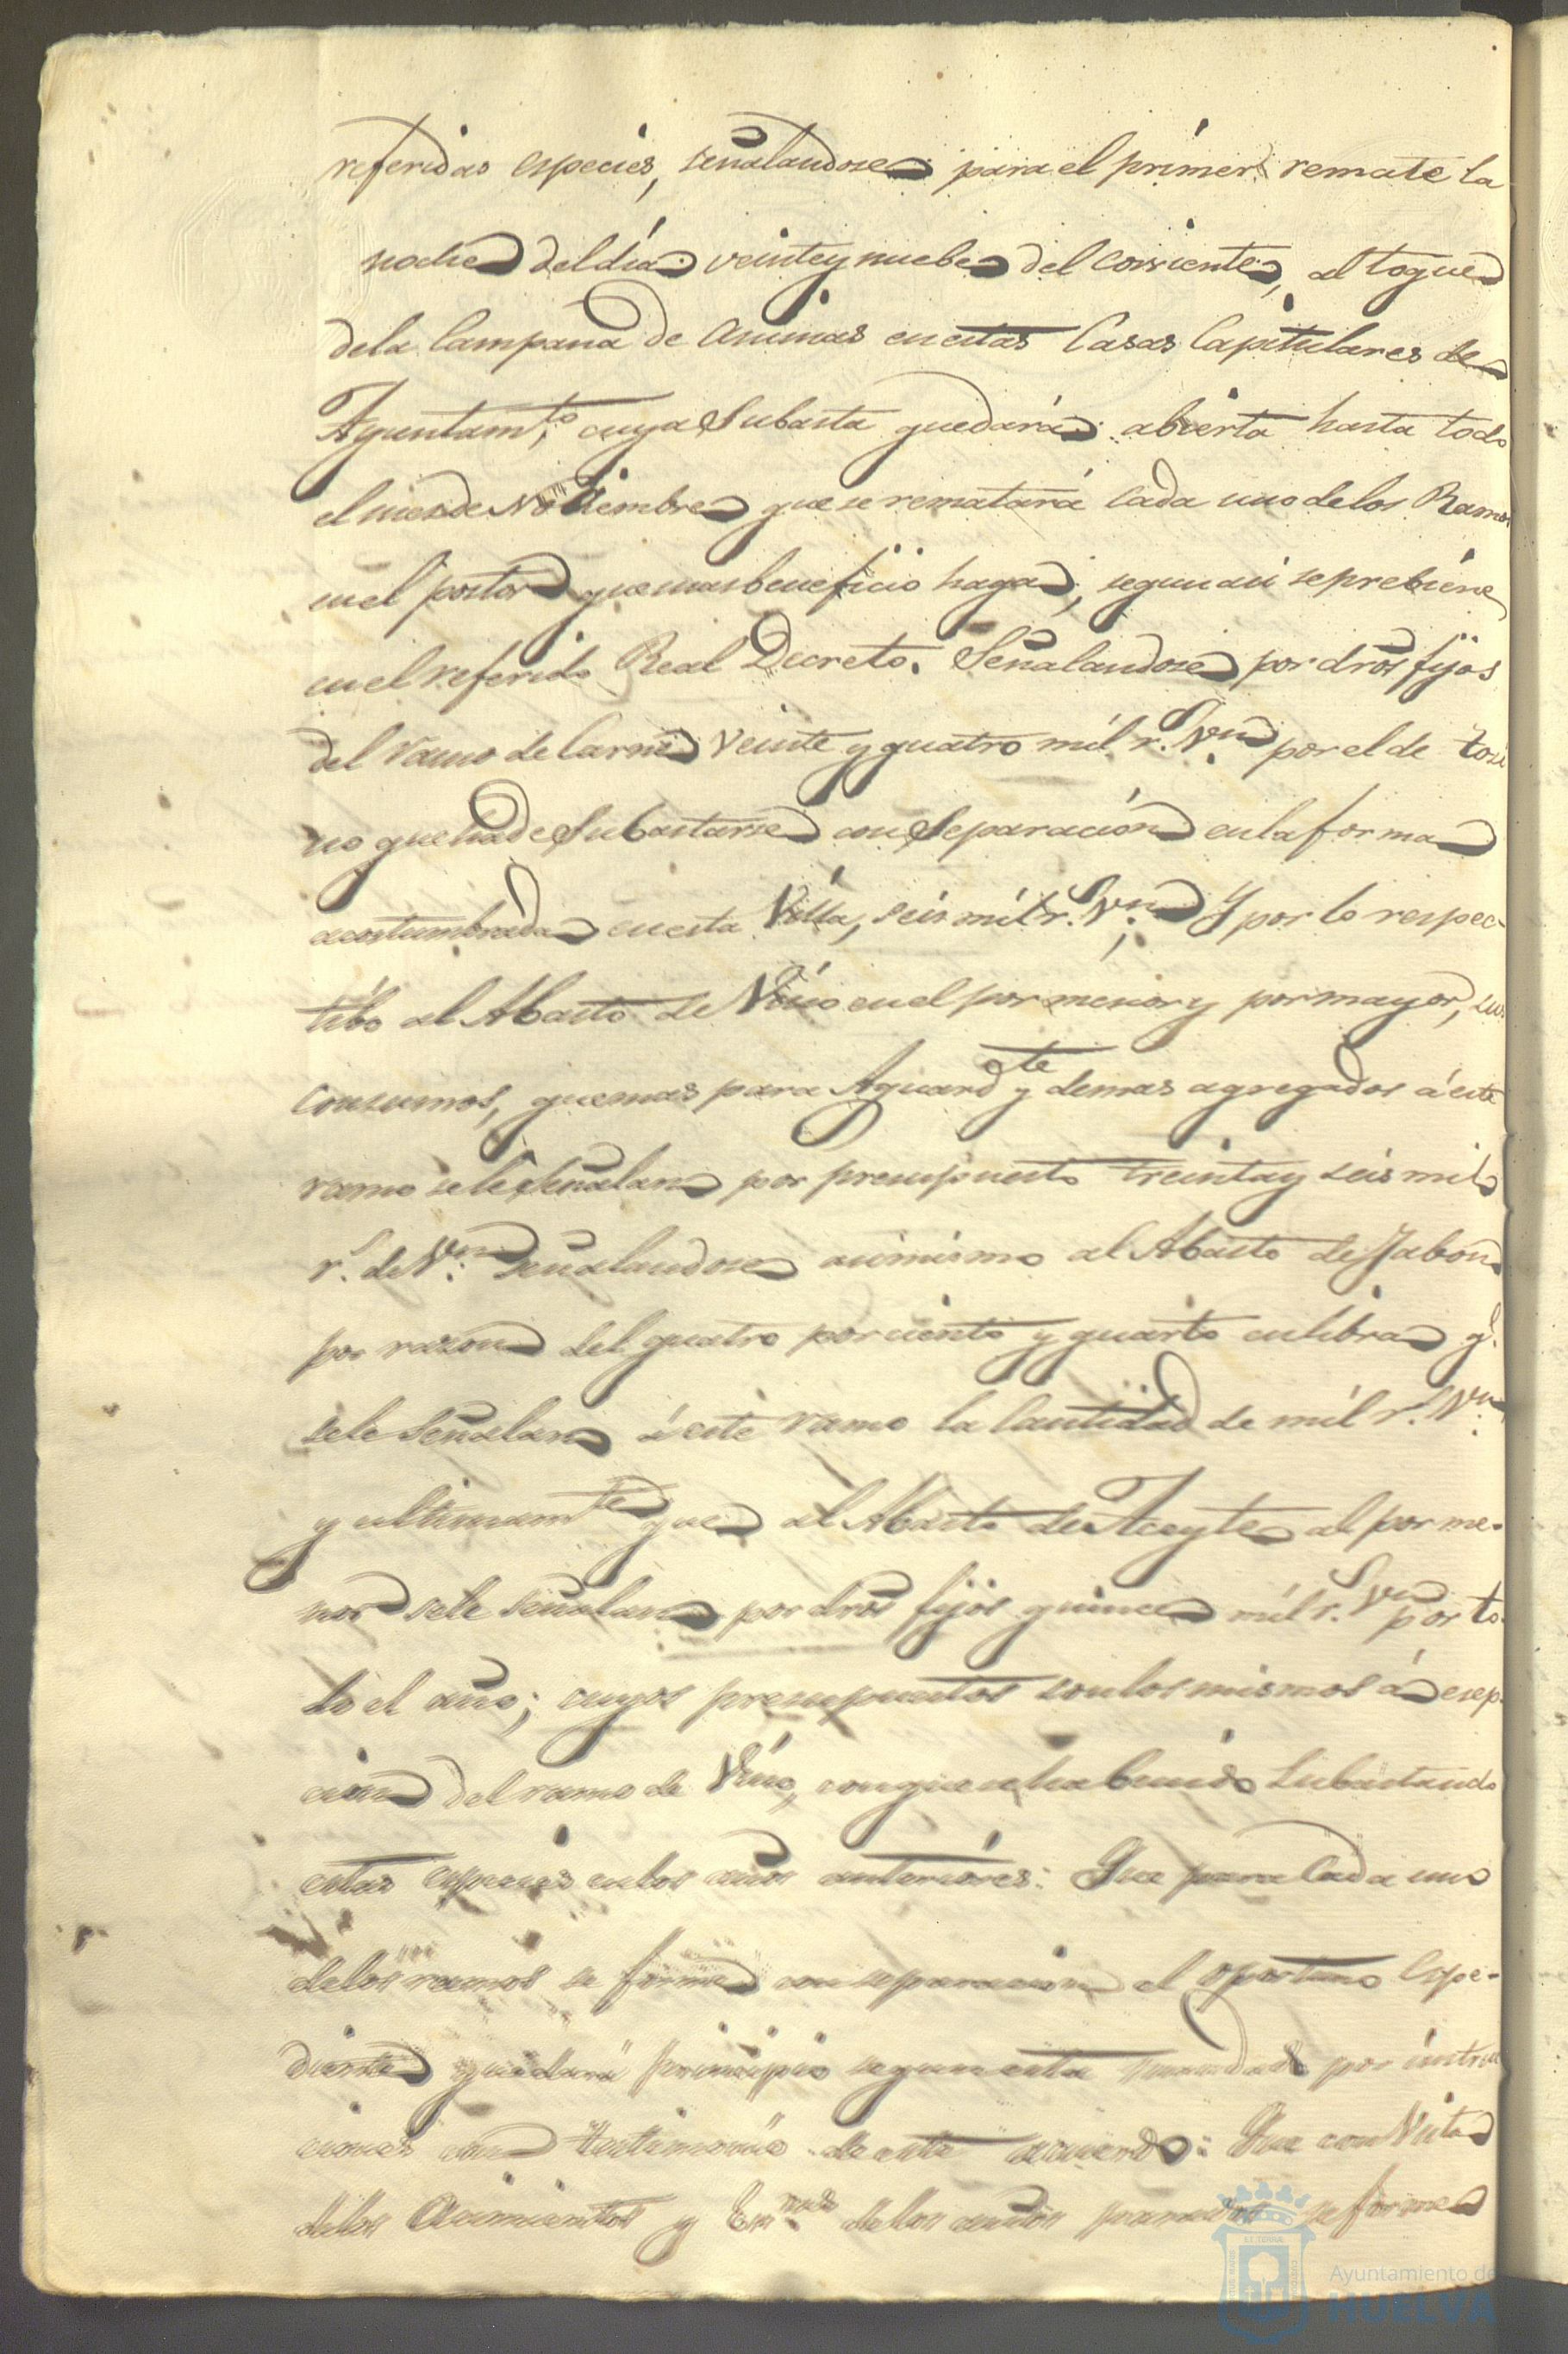 referidas especies, señalandose para el primer remate la
noche del dia veinte y nuebe del corriente, al toque
dela Campana de Animas en estas Casas Capitulares de
Ayuntamto. cuya Subasta quedará abierta hasta todo
el mes de Nobiembre que se rematará cada uno de los Ramos
en el postor que mas beneficio haga, segun asi se prebiene
en el referido Real Decreto. Señalandose por dros fijos
del ramo de Carne veinte y quatro mil rs. Vn. por el de toci
no que ha de Subastarse con Separación en la forma
acostumbrada en esta Villa, seis mil rs. Vn. Y por lo respec-
tibo al Abasto de Vino en el por menor y por mayor, sus
consumos, quemas para Aguardte y demas agregados á este
ramo se le Señalan por presupuesto treinta y seis mil
rs. de Vn. Señalandose asimismo al Abasto de Jabon
por razon del quatro por ciento y quarto en libra qe.
se le Señalan á este ramo la Cantidad de mil rs. Vn.
y ultimamte que al Abasto de Aceyte al por me-
nor se le señalan por dros fijos quince mil rs. Vn por to-
do el año; cuyos presupuestos son los mismos á esep-
cion del ramo de Vino, con que se ha benido Subastando
estas especies en los años anteriores: Que para Cada uno
delos ramos se forme con separacion el oportuno Espe-
diente que dará principio segun esta mandado por instruc
ciones con testimonio de este acuerdo: Que con Vista
delos Acimientos y de los años pasados se forme
Ayuntamiento de
HUELVA